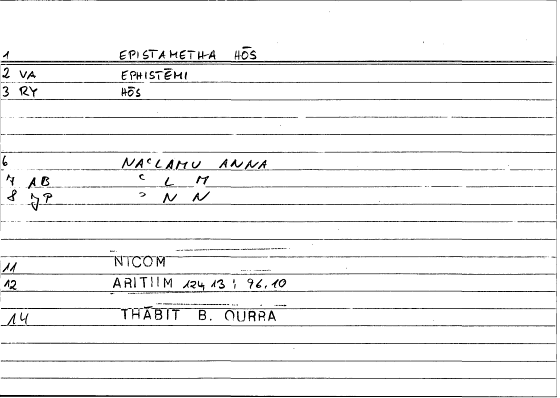 1 EPISTAMETHA HŌS
2 VA EPHISTĒMI
3 RY HŌS
6 NAʿLAMU ANNA
7 AB ʿ L M
8 JP ʾ N N
11 NICOM
12 ARITIIM 124,13; 96,10
14 THĀBIT B. QURRA